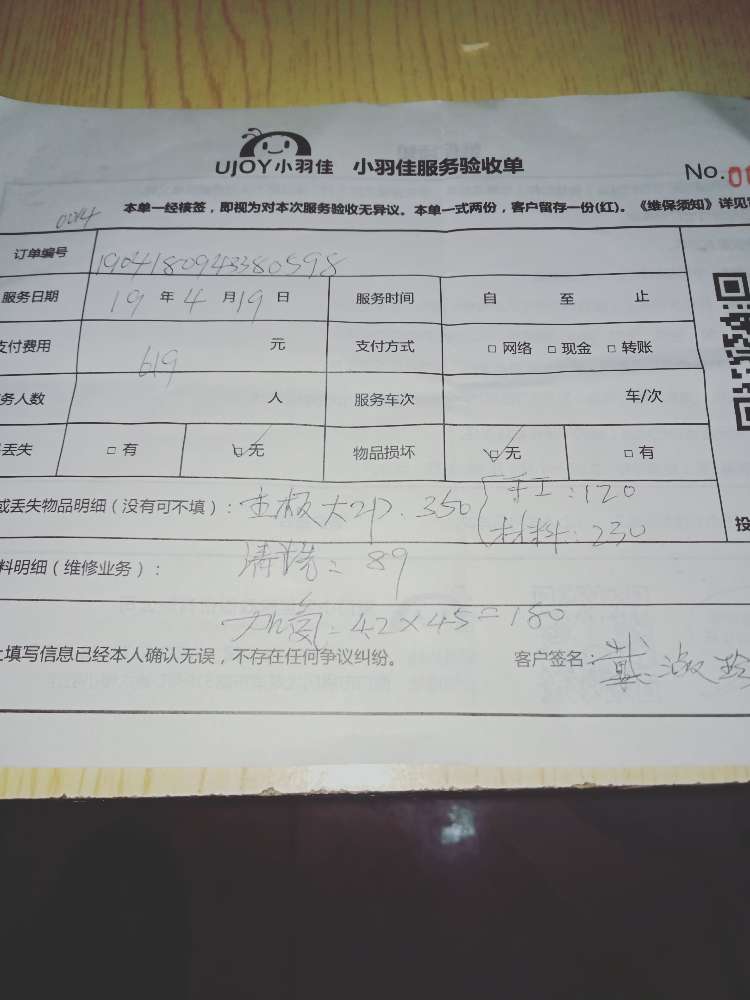 UJOY小羽佳 小羽佳服务验收单
No.0
0014
本单一经核签，即视为对本次服务验收无异议。本单一式两份，客户留存一份(红)。《维保须知》详见
订单编号 1904180943380598
服务日期 19 年 4 月 19 日 服务时间 自 至 止
支付费用 619 元 支付方式 □ 网络 □ 现金 □ 转账
务人数 人 服务车次 车/次
丢失 □ 有 □ 无 物品损坏 □ 无 □ 有
或丢失物品明细（没有可不填）：主板大修.350 手工：120
材料：230
投
料明细（维修业务）：清洗：89
加氟：4.2×45=180
填写信息已经本人确认无误，不存在任何争议纠纷。 客户签名：戴淑